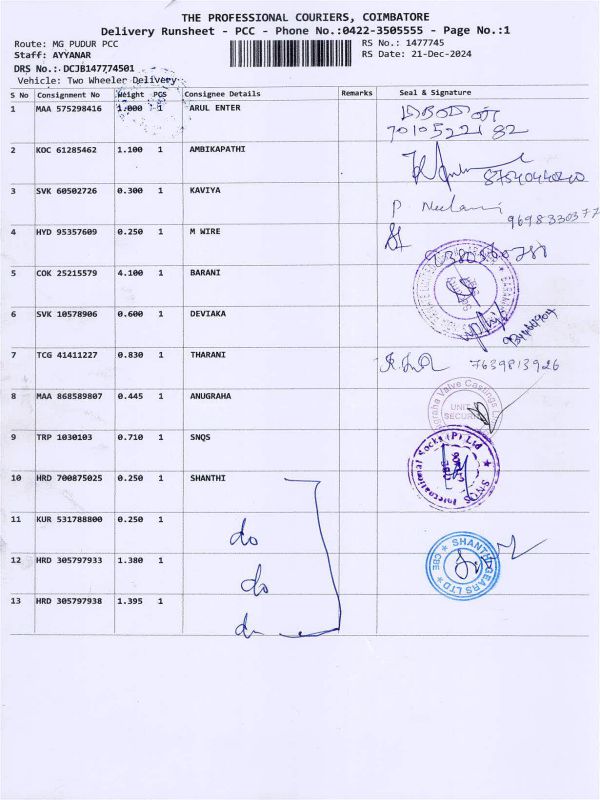 THE PROFESSIONAL COURIERS, COIMBATORE
Delivery Runsheet - PCC - Phone No.:0422-3505555 - Page No.:1
Route: MG PUDUR PCC RS No.: 1477745
Staff: AYYANAR RS Date: 21-Dec-2024
DRS No.: DCJB147774501
Vehicle: Two Wheeler Delivery
S No Consignment No Weight PCS Consignee Details Remarks Seal & Signature
1 MAA 575298416 1.000 1 ARUL ENTER
7010522182
2 KOC 61285462 1.100 1 AMBIKAPATHI
3 SVK 60502726 0.300 1 KAVIYA P
4 HYD 95357609 0.250 1 M WIRE
5 COK 25215579 4.100 1 BARANI
6 SVK 10578906 0.600 1 DEVIAKA
7 TCG 41411227 0.830 1 THARANI 7639813926
8 MAA 868589807 0.445 1 ANUGRAHA Valve Castings UNIT SECURITY
9 TRP 1030103 0.710 1 SNQS SNQS International Socks (P) Ltd
10 HRD 700875025 0.250 1 SHANTHI
11 KUR 531788800 0.250 1 do
12 HRD 305797933 1.380 1 do SHANTHI GEARS LTD CBE
13 HRD 305797938 1.395 1